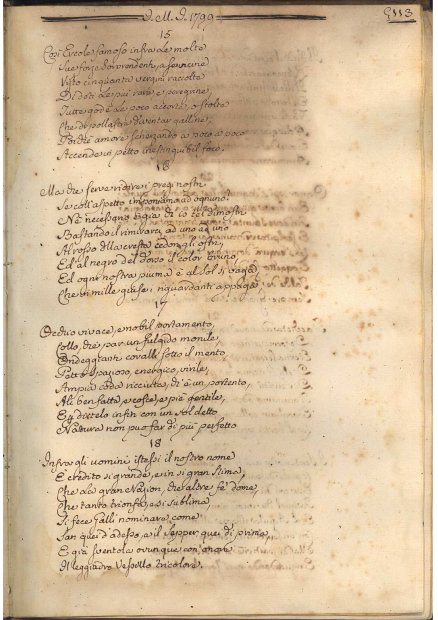 1799
113
15
Così Ercole famoso infra le molte
Sue forze
Visto cinquanta vergini raccolte
Di doti le più rare, e peregrine,
Tutte godè le poco accorte, o stolte
Che di pollastre diventar galline,
Poichè amore scherzando a poco a poco
Accendeva in petto inestinguibil foco.
16
Ma che serve ridire i pregi nostri
Se coll'aspetto imponiamo ad ognuno.
Nò necessario è già ch'io vel dimostri
Bastando il rimirarci ad uno ad uno
Al rosso della cresta cedon gli ostri,
Ed al negro del dorso il color bruno,
Ed ogni nostra piuma è al sol sì vaga,
Che in mille guise i riguardanti appaga.
17
Occhio vivace, e nobil portamento,
Collo, che par un fulgido monile,
Ondeggianti coralli sotto il mento,
Petto spazioso, energico, virile,
Ampia coda ricciuta, ch'è un portento,
Ali ben fatte, e cosce, e piè gentile,
E dittelo infin con un sol detto
Natura non può far di più perfetto
18
Infra gli uomini istessi il nostro nome
È credito sì grande, e in sì gran stima,
Che la gran Nazion, che altre fe' dome,
Che tanto trionfa, e sì sublima,
Si fece Galli nominare come
San quei d'adesso, e il sepper quei di prima,
E già sventola ovunque con
Il leggiadro Vessillo tricolore.